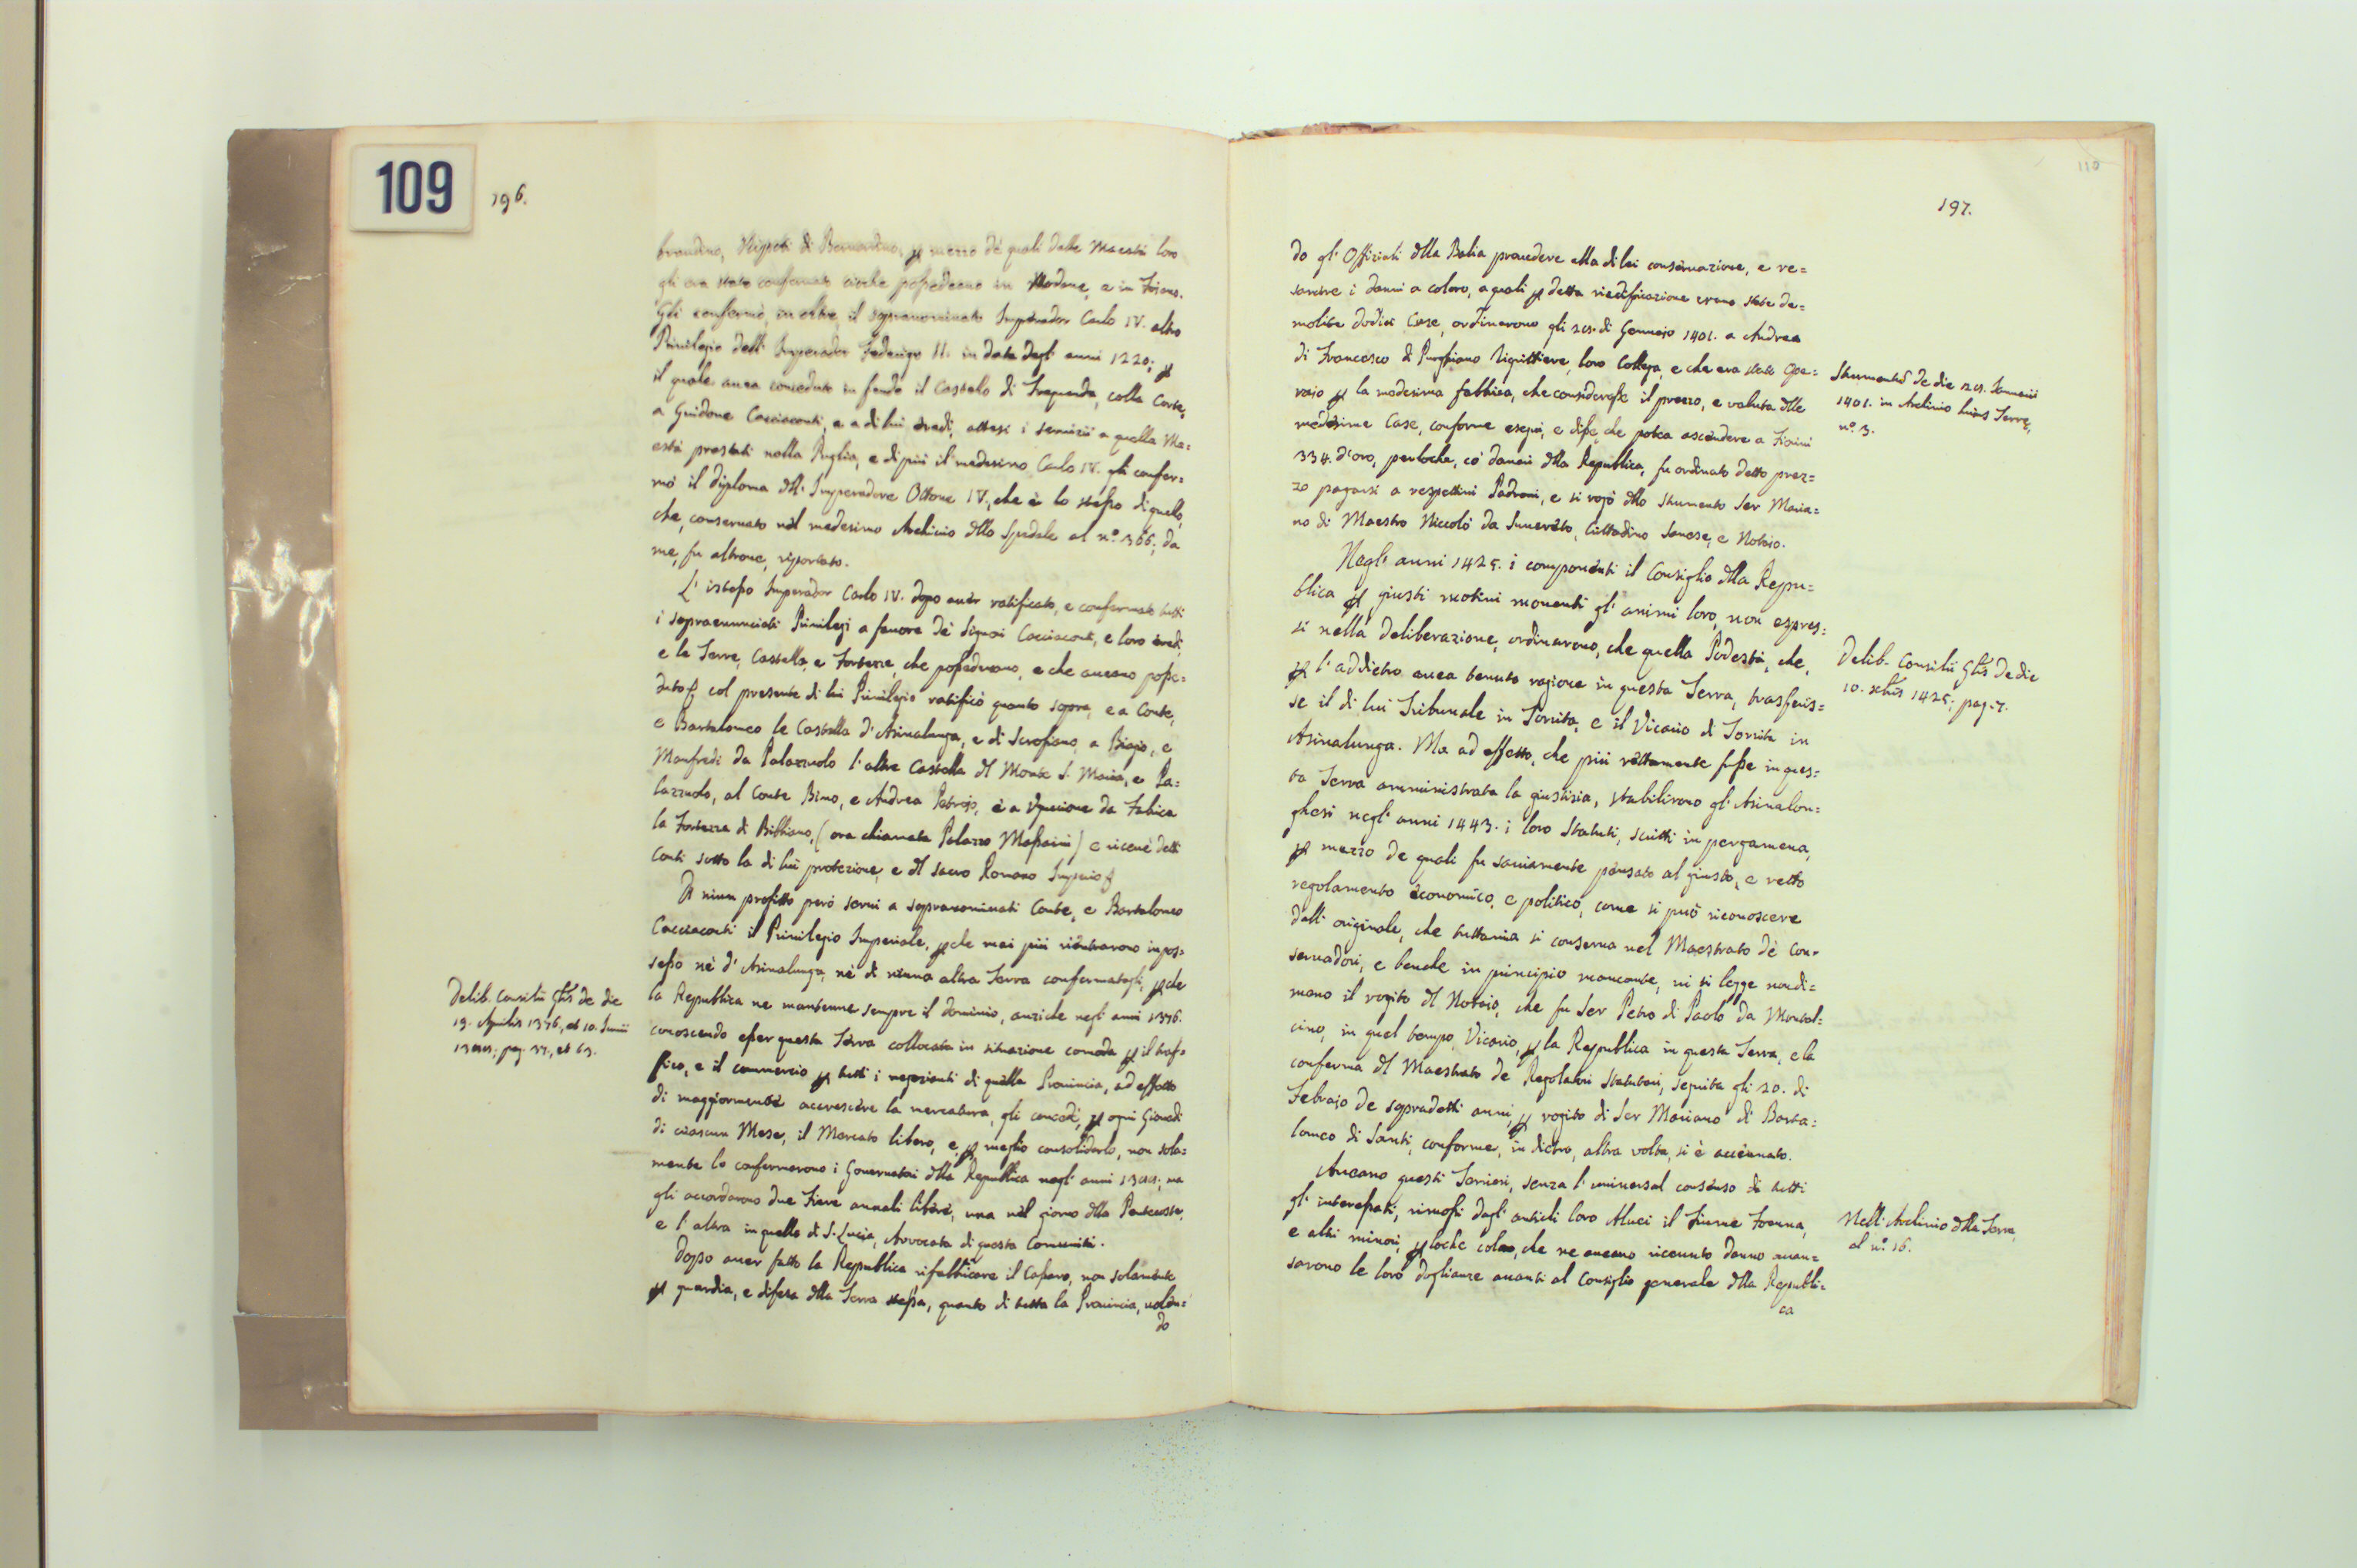 109
196.
brandino, Nipoti di Bernardino, p mezzo de quali dalle Maestà loro
gli era stato confermato ciocche possedeano in Modane, e in Foiano.
Gli confermò, in oltre, il sopranominato Imperador Carlo IV. altro
Privilegio dell' Imperador Federigo II. in data degl' anni 1220; p
il quale avea conceduto in feudo il Castello di Trequanda, colla Corte,
a Guidone Cacciaconti, e a di lui eredi, attesi i servizii a quella Ma=
està prestati nella Puglia, e di più il medesimo Carlo IV. gli confer=
mò il diploma dll' Imperadore Ottone IV, che è lo stesso di quello,
che, conservato nel medesimo Archivio dllo Spedale al nº. 366; da
me, fu altrove, riportato.
L' istesso Imperador Carlo IV. dopo aver ratificato, e confermato tutti
i sopraenunciati Privilegi a favore de' Signori Cacciaconti, e loro eredi,
e le Terre, Castella, e Fortezze, che possedevano, e che aveano posse=
duto, col presente di lui Privilegio ratificò quanto sopra, e a Conte,
e Bartalomeo le Castella d' Asinalunga, e di Scrofiano, a Biagio, e
Manfredi da Palazzuolo l' altre Castella dl Monte S. Maria, e Pa=
lazzuolo, al Conte Bino, e Andrea Patrojo, e a Uguccione da Fabica
la Fortezza di Bibbiano, (ora chiamata Palazzo Massaini) e ricevè detti
Conti sotto la di lui protezione, e dl Sacro Romano Imperio
A niun profitto però servì a sopranominati Conte, e Bartalomeo
Cacciaconti il Privilegio Imperiale, pche mai più rientrarono in pos=
sesso nè d' Asinalunga, nè di niuna altra Terra confermatagli, pche
la Repubblica ne mantenne sempre il dominio, anziche negl' anni 1376.
conoscendo esser questa Terra collocata in situazione comoda p il traf=
fico, e il commercio p tutti i negozianti di quella Provincia, ad effetto
di maggiormente accrescere la mercatura, gli concedè, p ogni Giovedì
di ciascun Mese, il Mercato libero, e, p meglio consolidarlo, non sola=
mente lo confermarono i Governatori dlla Repubblica negl' anni 1388; ma
gli accordarono due Fiere annali libere, una nel giorno dlla Pentecoste,
e l' altra in quello di S. Lucia, Avvocata di questa Comunità.
Dopo aver fatto la Repubblica rifabbricare il Cassaro, non solamente
p guardia, e difesa dlla Terra stessa, quanto di tutta la Provincia, volen=
do
Delib. Consilii Gñlis de die
19. Aprilis 1376, et 10. Junii
1388; pag. 37, et 63.
110
197.
do gl' Offiziali dlla Balia provvedere alla di lei conservazione, e re=
sarcire i danni a coloro, a quali p detta riedificazione erano state de=
molite dodici Case, ordinarono gli 28. di Gennajo 1401. a Andrea
di Francesco di Purghiano Ligrittiere, loro Collega, e che era stato Ope=
raio p la medesima fabbrica, che considerasse il prezzo, e valuta dlle
medesime Case, conforme eseguì, e disse, che potea ascendere a Fiorini
334. d'oro, perloche, co' danari dlla Repubblica, fu ordinato detto prez=
zo pagarsi a respettivi Padroni, e si rogò dllo Strumento Ser Maria=
no di Maestro Niccolò da Suvereto, Cittadino Sanese, e Notaio.
Negl' anni 1425. i componenti il Consiglio dlla Repu=
blica p giusti motivi moventi gl' animi loro, non espres=
si nella deliberazione, ordinarono, che quella Podestà, che,
p l' addietro avea tenuto ragione in questa Terra, trasferis=
se il di lui Tribunale in Torrita, e il Vicario di Torrita in
Asinalunga. Ma ad effetto, che più rettamente fosse in ques=
ta Terra amministrata la giustizia, stabilirono gl' Asinalon=
ghesi negl' anni 1443. i loro Statuti, scritti in pergamena,
p mezzo de quali fu saviamente pensato al giusto, e retto
regolamento economico, e politico, come si può riconoscere
dall' originale, che tuttavia si conserva nel Maestrato de' Con=
servadori, e benche in principio mancante, vi si legge nondi=
meno il rogito dl Notaio, che fu Ser Petro di Paolo da Montal=
cino, in quel tempo Vicario, p la Repubblica in questa Terra, e la
conferma dl Maestrato de' Regolatori Statutari, seguita gli 20. di
Febrajo de sopradetti anni, p rogito di Ser Mariano di Barta=
lomeo di Santi, conforme, in dietro, altra volta, si è accennato.
Aveano questi Terrieri, senza l' universal consenso di tutti
gl' interessati, rimossi dagl' antichi loro Alvei il Fiume Foenna,
e altri minori, ploche coloro, che ne aveano ricevuto danno avan=
sarono le loro doglianze avanti al Consiglio generale dlla Republi=
ca
Strumentũ de die 28. Januarii
1401. in Archivio huius Terrę,
nº. 3.
Delib. Consilii Gñlis de die
10. xbris 1425; pag. 7.
Nell' Archivio dlla Terra,
al nº. 16.